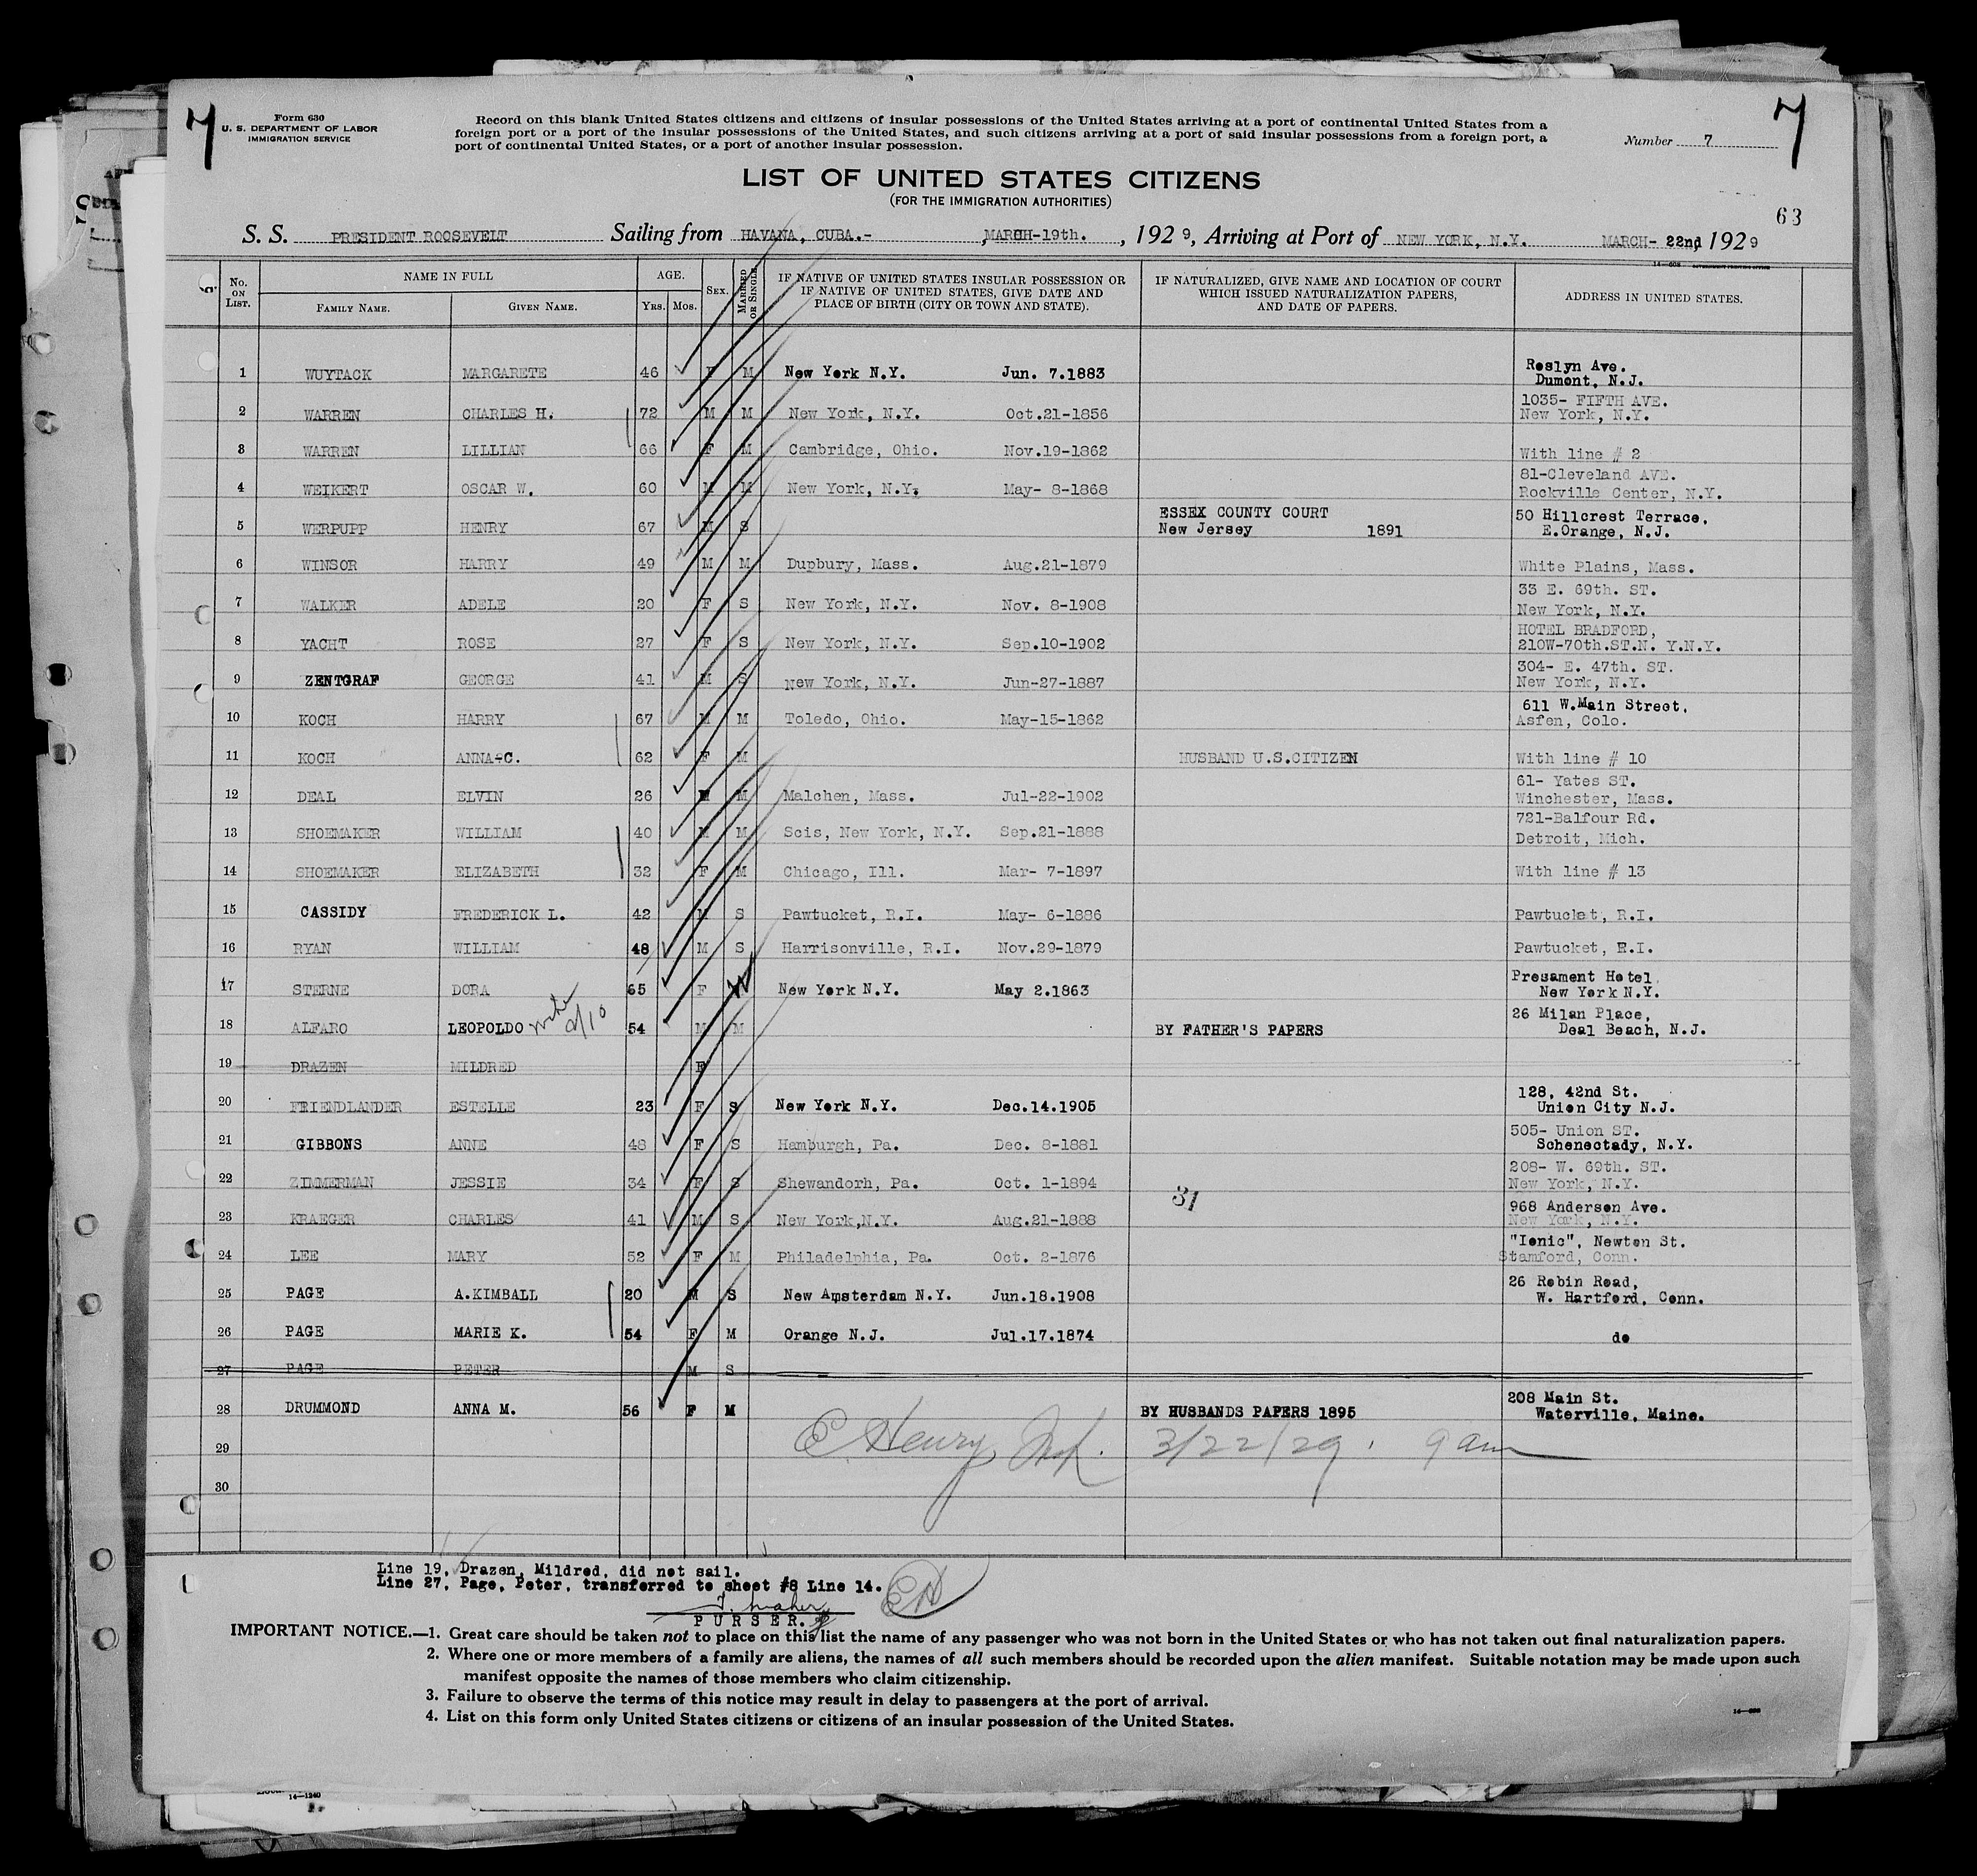 7
Form 630
U. S. DEPARTMENT OF LABOR
IMMIGRATION SERVICE
Record on this blank United States citizens and citizens of insular possessions of the United States arriving at a port of continental United States from a
foreign port or a port of the insular possessions of the United States, and such citizens arriving at a port of said insular possessions from a foreign port, a
port of continental United States, or a port of another insular possession.
Number 7
7
LIST OF UNITED STATES CITIZENS
(FOR THE IMMIGRATION AUTHORITIES)
63
S. S. PRESIDENT ROOSEVELT Sailing from HAVANA, CUBA.- ,MARCH-19th. , 1929, Arriving at Port of NEW YORK, N.Y. MARCH- 22nd 1929
No. ON LIST. NAME IN FULL FAMILY NAME. GIVEN NAME. AGE. Yrs. Mos. Sex. MARRIED OR SINGLE
IF NATIVE OF UNITED STATES INSULAR POSSESSION OR
IF NATIVE OF UNITED STATES, GIVE DATE AND
PLACE OF BIRTH (CITY OR TOWN AND STATE).
IF NATURALIZED, GIVE NAME AND LOCATION OF COURT
WHICH ISSUED NATURALIZATION PAPERS,
AND DATE OF PAPERS.
ADDRESS IN UNITED STATES.
1 WUYTACK MARGARETE 46 F M New York N.Y. Jun. 7.1883 Roslyn Ave.
Dumont, N.J.
2 WARREN CHARLES H. 72 M M New York, N.Y. Oct.21-1856 1035- FIFTH AVE.
New York, N.Y.
3 WARREN LILLIAN 66 F M Cambridge, Ohio. Nov.19-1862 With line # 2
4 WEIKERT OSCAR W. 60 M M New York, N.Y. May- 8-1868 81-Cleveland AVE.
Rockville Center, N.Y.
5 WERPUPP HENRY 67 M S ESSEX COUNTY COURT
New Jersey 1891 50 Hillcrest Terrace,
E.Orange, N.J.
6 WINSOR HARRY 49 M M Dupbury, Mass. Aug.21-1879 White Plains, Mass.
7 WALKER ADELE 20 F S New York, N.Y. Nov. 8-1908 33 E. 69th. ST.
New York, N.Y.
8 YACHT ROSE 27 F S New York, N.Y. Sep.10-1902 HOTEL BRADFORD,
210W-70th.ST.N. Y.N.Y.
9 ZENTGRAF GEORGE 41 M S New York, N.Y. Jun-27-1887 304- E. 47th. ST.
New York, N.Y.
10 KOCH HARRY 67 M M Toledo, Ohio. May-15-1862 611 W.Main Street,
Asfen, Colo.
11 KOCH ANNA-C. 62 F M HUSBAND U.S.CITIZEN With line # 10
12 DEAL ELVIN 26 M M Malchen, Mass. Jul-22-1902 61- Yates ST.
Winchester, Mass.
13 SHOEMAKER WILLIAM 40 M M Scis, New York, N.Y. Sep.21-1888 721-Balfour Rd.
Detroit, Mich.
14 SHOEMAKER ELIZABETH 32 F M Chicago, Ill. Mar- 7-1897 With line # 13
15 CASSIDY FREDERICK L. 42 M S Pawtucket, R.I. May- 6-1886 Pawtucket, R.I.
16 RYAN WILLIAM 48 M S Harrisonville, R.I. Nov.29-1879 Pawtucket, R.I.
17 STERNE DORA 65 F W New York N.Y. May 2.1863 Presament Hotel
New York N.Y.
18 ALFARO LEOPOLDO 54 M M BY FATHER'S PAPERS 26 Milan Place,
Deal Beach, N.J.
19 DRAZEN MILDRED F
20 FRIENDLANDER ESTELLE 23 F S New York N.Y. Dec.14.1905 128, 42nd St.
Union City N.J.
21 GIBBONS ANNE 48 F S Hamburgh, Pa. Dec. 8-1881 505- Union ST.
Schenectady, N.Y.
22 ZIMMERMAN JESSIE 34 F S Shewandorh, Pa. Oct. 1-1894 208- W. 69th. ST.
New York, N.Y.
31
23 KRAEGER CHARLES 41 M S New York,N.Y. Aug.21-1888 968 Anderson Ave.
New York, N.Y.
24 LEE MARY 52 F M Philadelphia, Pa. Oct. 2-1876 "Ionic", Newton St.
Stamford, Conn.
25 PAGE A.KIMBALL 20 M S New Amsterdam N.Y. Jun.18.1908 26 Robin Road,
W. Hartford, Conn.
26 PAGE MARIE K. 54 F M Orange N.J. Jul.17.1874 do
27 PAGE PETER M S
28 DRUMMOND ANNA M. 56 F M BY HUSBANDS PAPERS 1895 208 Main St.
Waterville, Maine.
29 E Henry 3/22/29. 9 am
30
Line 19, Drazen, Mildred, did not sail.
Line 27, Page, Peter, transferred to sheet #8 Line 14.
EH
T. Maher
PURSER.
IMPORTANT NOTICE.—1. Great care should be taken not to place on this list the name of any passenger who was not born in the United States or who has not taken out final naturalization papers.
2. Where one or more members of a family are aliens, the names of all such members should be recorded upon the alien manifest. Suitable notation may be made upon such
manifest opposite the names of those members who claim citizenship.
3. Failure to observe the terms of this notice may result in delay to passengers at the port of arrival.
4. List on this form only United States citizens or citizens of an insular possession of the United States.
14—1240